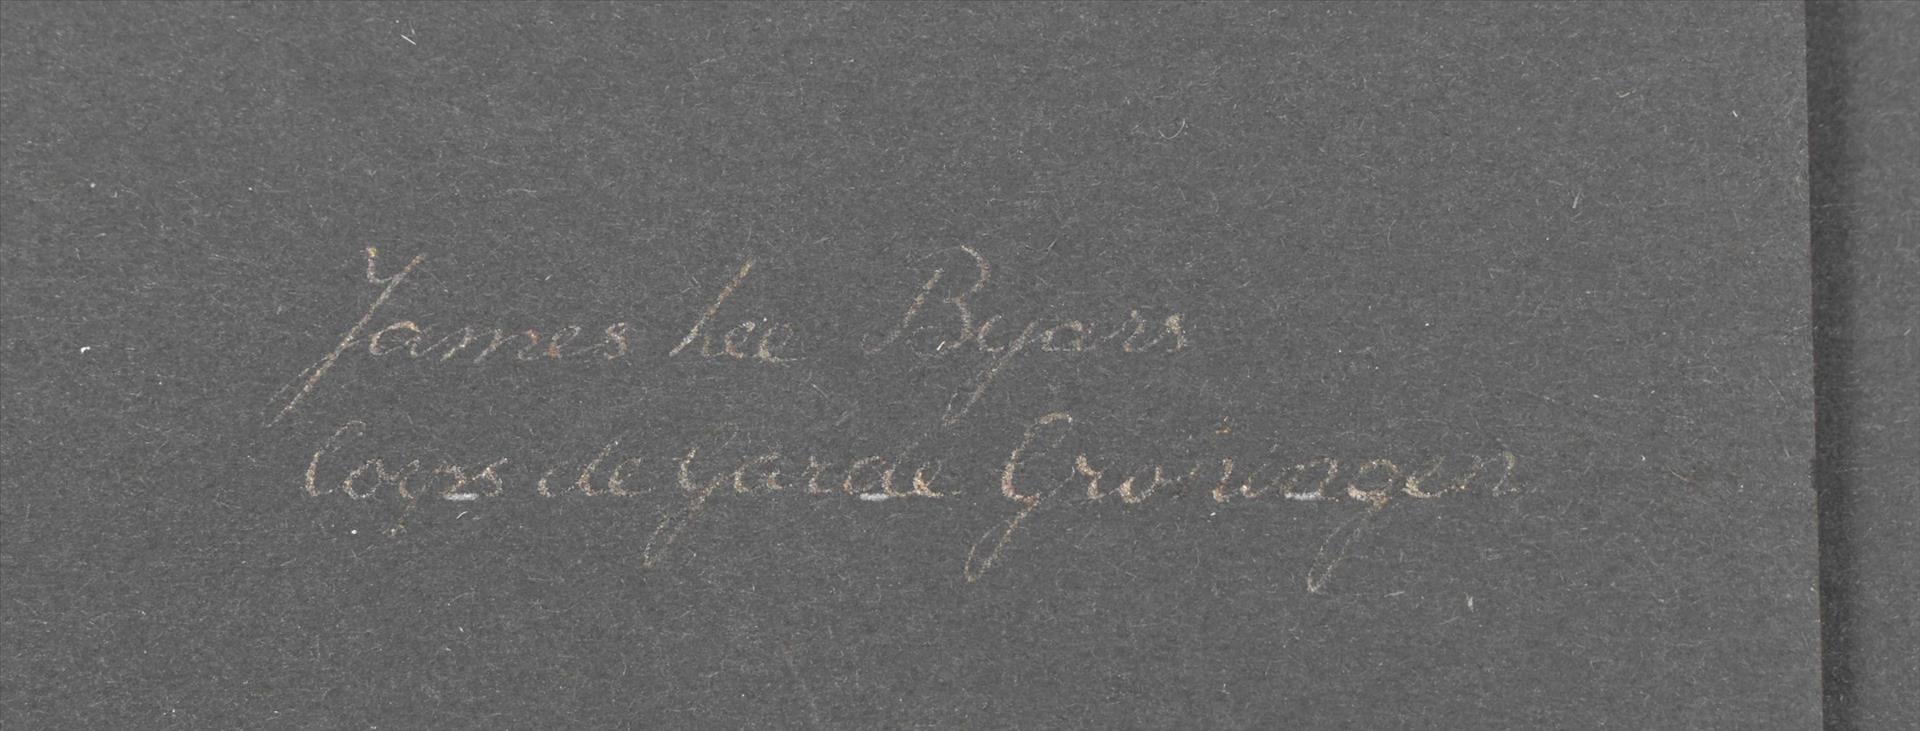 James Lee Byars
Corps de Garde Groningen